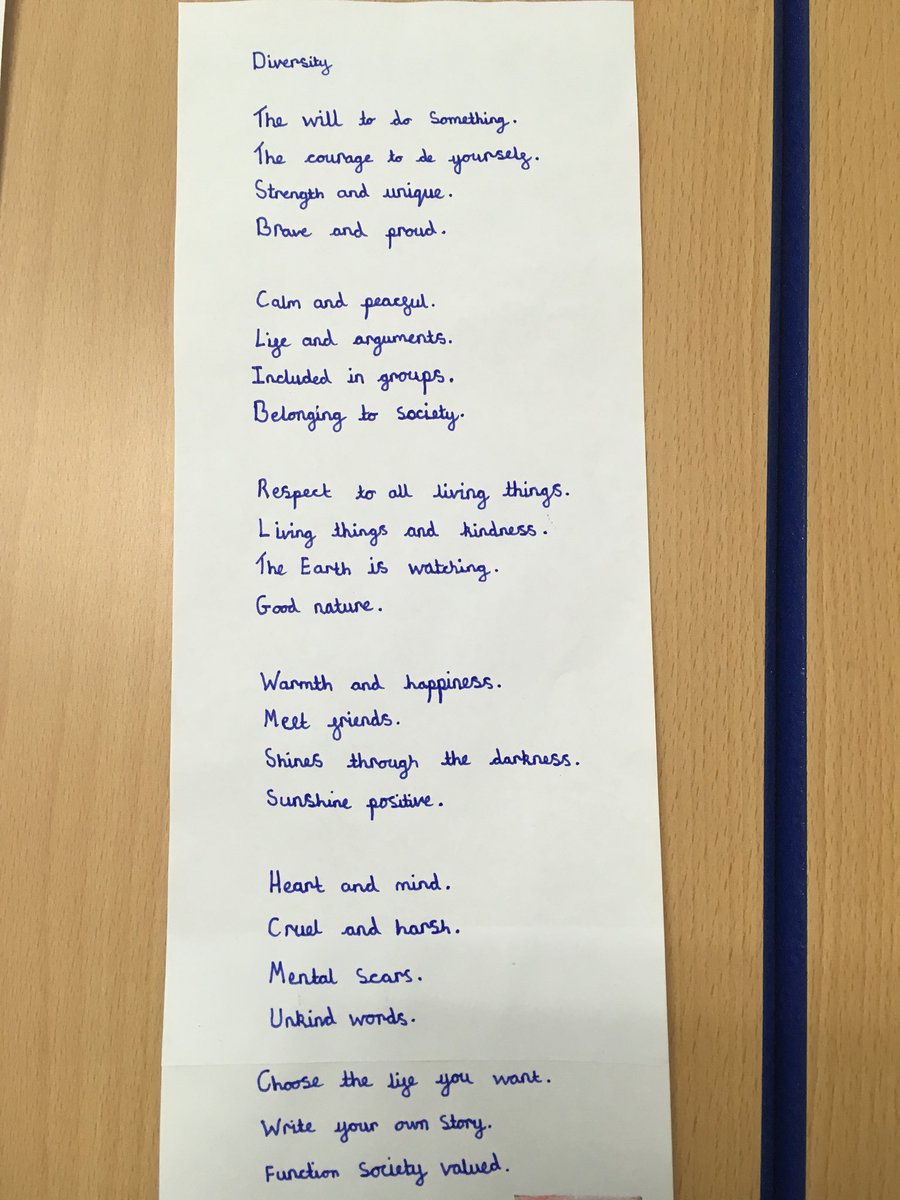 Diversity
The will to do something.
The courage to de yourself.
Strength and unique.
Brave and proud.
Calm and peaceful.
Life and arguments.
Included in groups.
Belonging to society.
Respect to all living things.
Living things and kindness.
The Earth is watching.
Good nature.
Warmth and happiness.
Meet friends.
Shines through the darkness.
Sunshine positive.
Heart and mind.
Cruel and harsh.
Mental Scars.
Unkind words.
Choose the life you want.
Write your own Story.
Function Society valued.